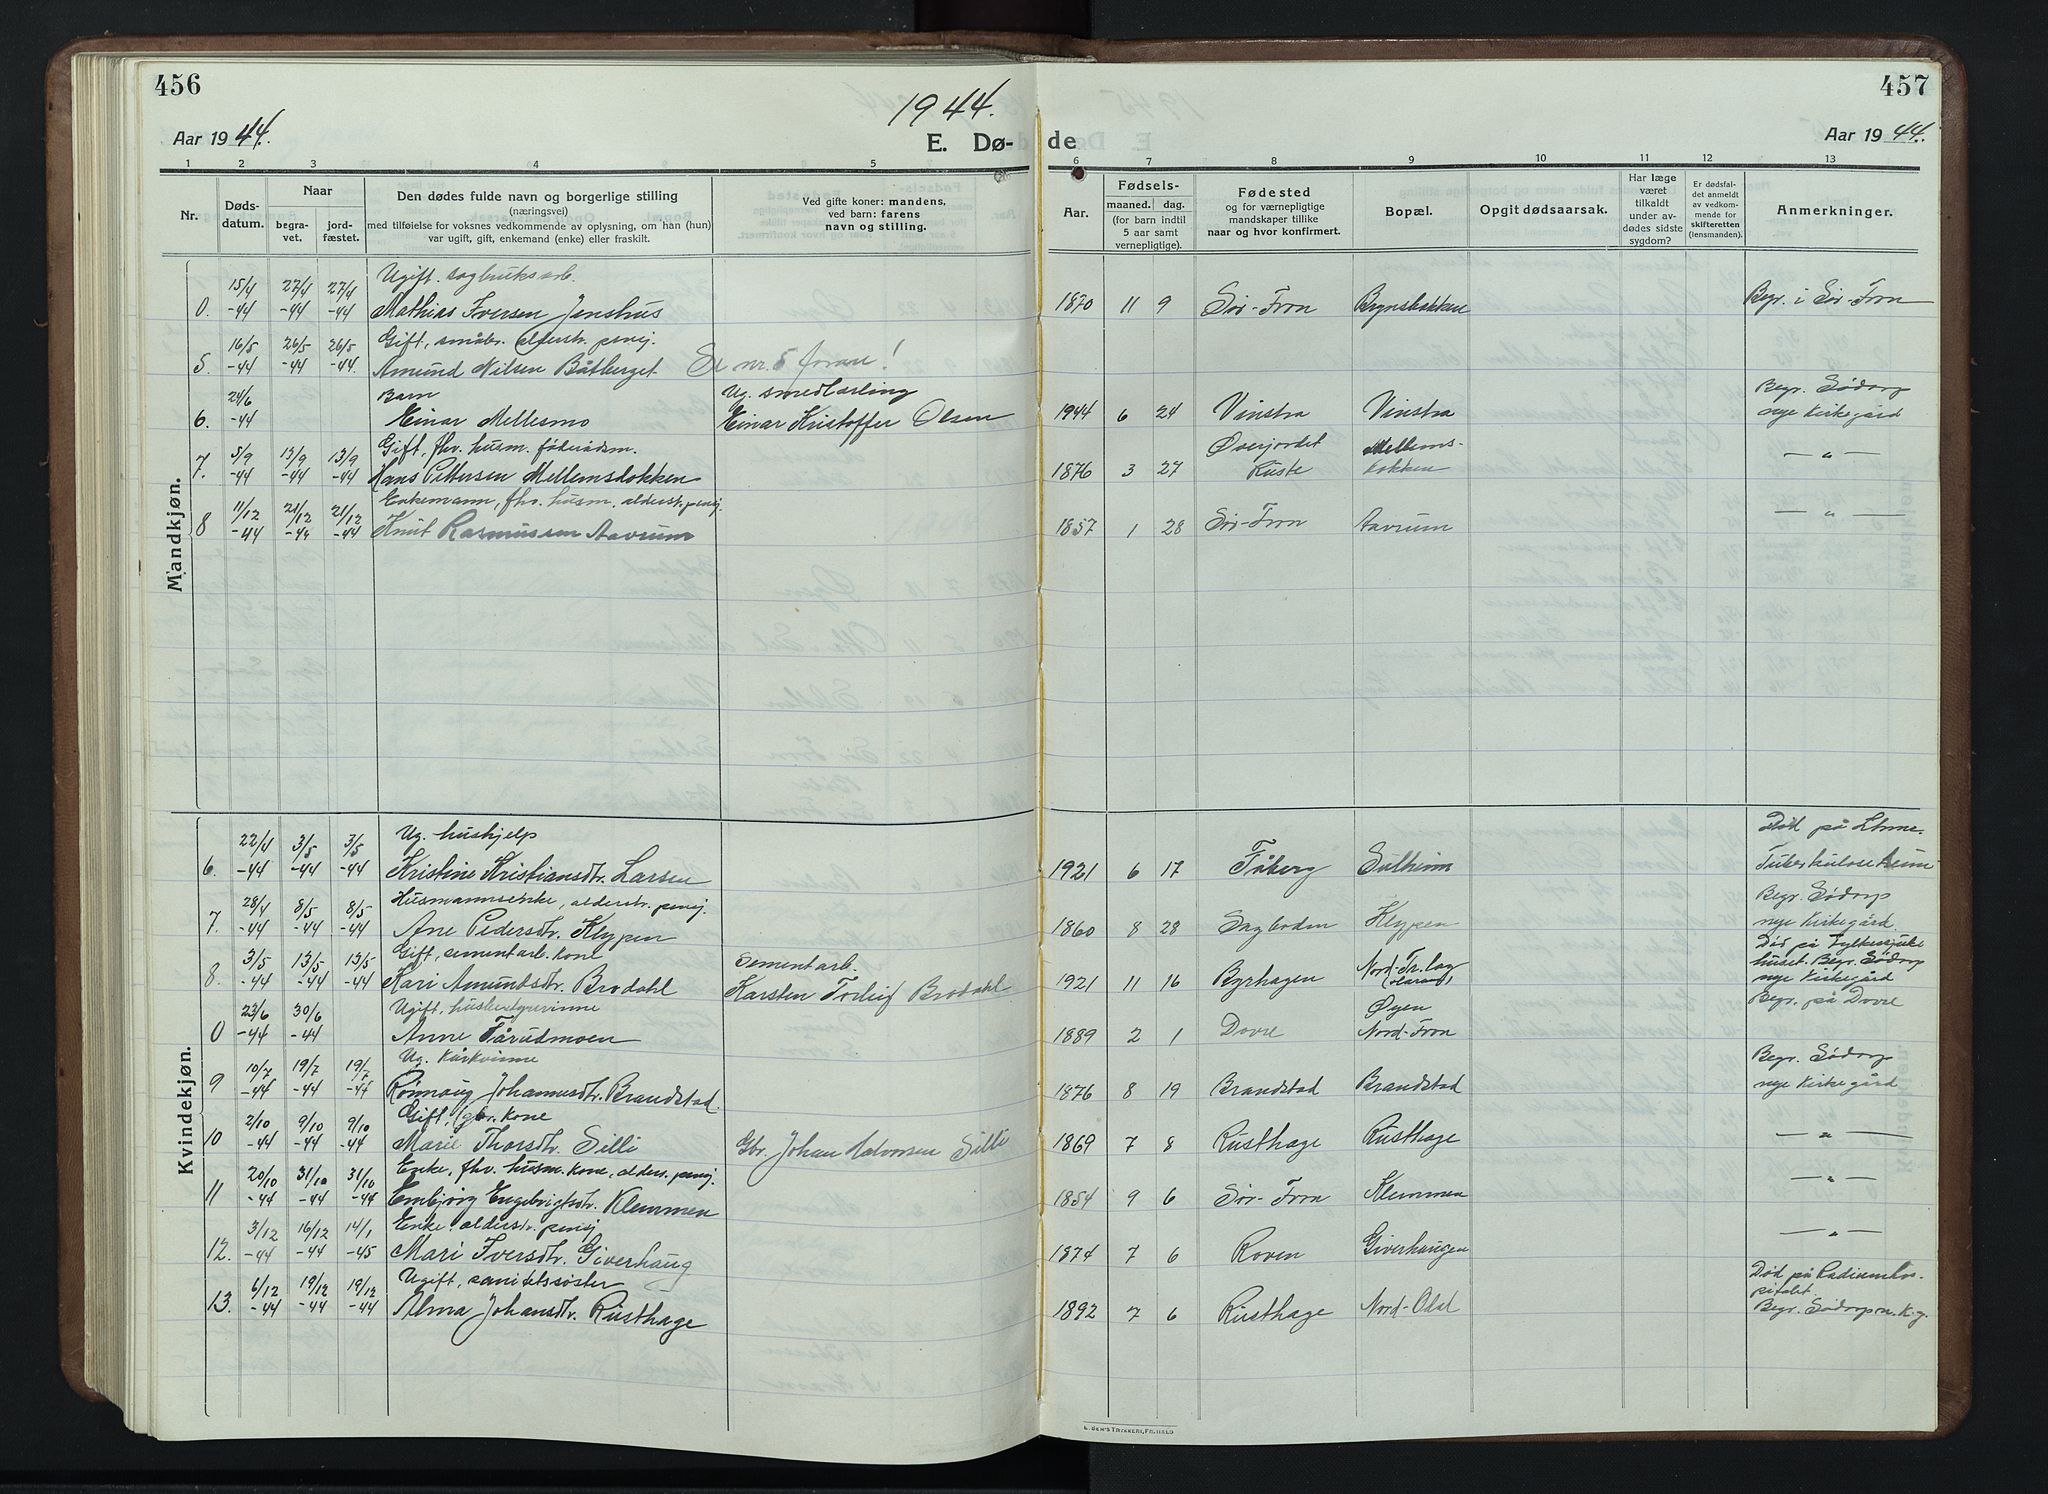 456
457
1944.
Aar 1944.
E. Dø-
de
Aar 1944.
1 2 3 4 5 6 7 8 9 10 11 12 13
Nr.
Døds-
datum.
Naar
begra-
vet.
jord-
fæstet.
Den dødes fulde navn og borgerlige stilling
(næringsvei)
med tilføielse for voksnes vedkommende av oplysning, om han (hun)
var ugift, gift, enkemand (enke) eller fraskilt.
Ved gifte koner: mandens,
ved barn: farens
navn og stilling.
Aar.
Fødsels-
maaned. dag.
(for barn indtil
5 aar samt
vernepligtige).
Fødested
og for værnepligtige
mandskaper tillike
naar og hvor konfirmert.
Bopæl.
Opgit dødsaarsak.
Har læge
været
tilkaldt
under av-
dødes sidste
sygdom?
Er dødsfal-
det anmeldt
av vedkom-
mende for
skifteretten
(lensmanden).
Anmerkninger.
Mandkjøn.
15/4 27/4 27/4 Ugift. sagbruksarb.
0. -44 -44 -44 Mathias Iversen Jenshus 1870 11 9 Sør-Fron Brynsbakken Begr. i Sør-Fron
16/5 26/5 26/5 Gift, småbr. alderstr. pensj.
5. -44 -44 -44. Amund Nilsen Båtberget Se nr. 5 foran!
24/6 Barn Ug. smedlærling Begr. Sødorp
6. -44 Einar Mellesmo Einar Kristoffer Olsen 1944 6 24 Vinstra Vinstra nye Kirkegård
5/9 13/9 13/9 Gift, fhv. husm. føderådsm. Øverjordet Mellems-
7. -44 -44 -44 Hans Pettersen Mellemsløkken 1876 3 27 Ruste løkken — " —
11/12 21/12 21/12 Enkemann, fhv. husm. alderst. pensj.
8 -44 -44 -44 Knut Rasmussen Aavrum 1857 1 28 Sør-Fron Aavrum — " —
Kvindekjøn.
22/4 3/5 3/5 Ug. hushjelp Død på Lhmr.
6. -44 -44 -44 Kristine Kristiansdtr. Larsen 1921 6 17 Fåberg Sulheim Tuberkuloseheim
28/4 8/5 8/5 Husmannsenke, alderstr. pensj. Begr. Sødorp
7. -44 -44 -44 Ane Pedersdtr. Klypen 1860 8 28 Sagboden Klypen nye Kirkegård.
3/5 13/5 13/5 Gift, sementarb. kone Sementarb. Nord-Tr.lag Død på Fylkessjuke
8. -44 -44 -44 Kari Amundsdtr. Brodahl Karsten Torleif Brodahl 1921 11 16 Byrhagen huset. Begr. Sødorp
nye Kirkegård
23/6 30/6 Ugift, husbestyrerinne Øyen Begr. på Dovre
0 -44 -44 Anne Tårudmoen 1889 2 1 Dovre Nord-Fron
10/7 19/7 19/7 Ug. kårkvinne Begr. Sødorp
9 -44 -44 -44 Rønnaug Johannesdtr. Brandstad 1876 8 19 Brandstad Brandstad nye Kirkegård
2/10 9/10 9/10 Gift, gbr. kone
10 -44 -44 -44 Marie Thorsdtr. Silli Gbr. Johan Halvorsen Silli 1869 7 8 Rusthage Rusthage — " —
20/10 31/10 31/10 Enke, fhv. husm. kone, alders. pensj.
11 -44 -44 -44 Embjørg Engebrigtsdtr. Klemmen 1854 9 6 Sør-Fron Klemmen — " —
3/12 16/12 14/1 Enke. alderstr. pensj
12. -44 -44 -45 Mari Iversdtr. Giverhaug 1874 7 6 Roven Giverhaugen — " —
6/12 19/12 19/12 Ugift, sanitetssøster Død på Radiumhos-
pitalet.
13. -44 -44 -44 Alma Johansdtr. Rusthage 1892 7 6 Rusthage Nord-Odal Begr. Sødorp n. K.g.